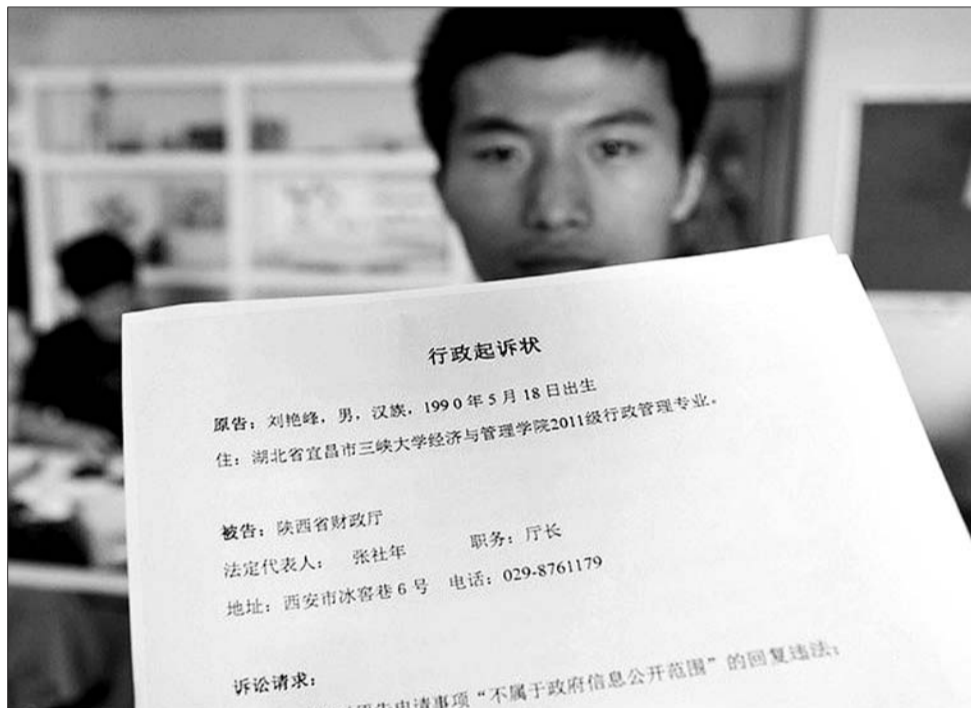 行政起诉状
原告：刘艳峰，男，汉族，1990年5月18日出生
住：湖北省宜昌市三峡大学经济与管理学院2011级行政管理专业。
被告：陕西省财政厅
法定代表人： 张社年 职务：厅长
地址：西安市冰窖巷6号 电话：029-8761179
诉讼请求：
原告申请事项“不属于政府信息公开范围”的回复违法；